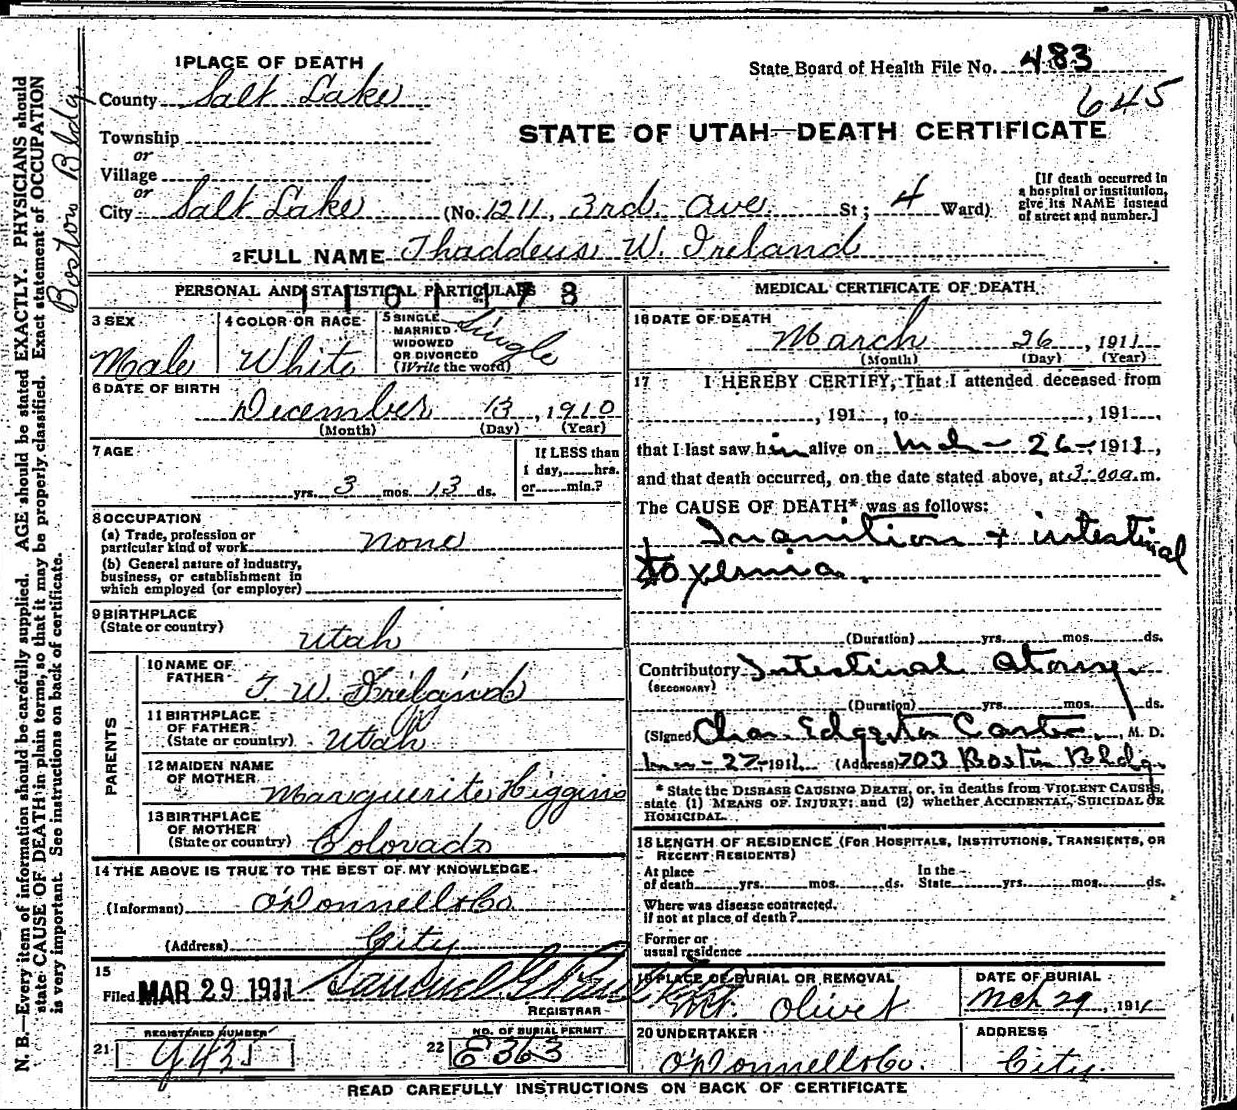 1 PLACE OF DEATH
State Board of Health File No. 483
645
County Salt Lake
STATE OF UTAH—DEATH CERTIFICATE
Township
or
Village
or
City Salt Lake (No. 1211, 3rd. Ave St; 4 Ward)
[If death occurred in
a hospital or institution,
give its NAME instead
of street and number.]
2 FULL NAME Thaddeus W. Ireland
PERSONAL AND STATISTICAL PARTICULARS
1101178
3 SEX
Male
4 COLOR OR RACE
White
5 SINGLE
MARRIED
WIDOWED
OR DIVORCED
(Write the word)
Single
6 DATE OF BIRTH
December 13, 1910
(Month) (Day) (Year)
7 AGE
yrs. 3 mos. 13 ds.
If LESS than
1 day, hrs.
or min.?
8 OCCUPATION
(a) Trade, profession or
particular kind of work none
(b) General nature of industry,
business, or establishment in
which employed (or employer)
9 BIRTHPLACE
(State or country)
Utah
PARENTS
10 NAME OF
FATHER T. W. Ireland
11 BIRTHPLACE
OF FATHER
(State or country) Utah
12 MAIDEN NAME
OF MOTHER
Marguerite Higgins
13 BIRTHPLACE
OF MOTHER
(State or country) Colorado
14 THE ABOVE IS TRUE TO THE BEST OF MY KNOWLEDGE
(Informant) O'Donnell & Co
(Address) City
15
Filed MAR 29 1911 Samuel G. Paul
REGISTRAR
21 REGISTERED NUMBER
22 NO. OF BURIAL PERMIT
E363
MEDICAL CERTIFICATE OF DEATH
16 DATE OF DEATH
March 26, 1911
(Month) (Day) (Year)
17 I HEREBY CERTIFY, That I attended deceased from
, 191 , to , 191 ,
that I last saw him alive on Mch - 26 - 1911,
and that death occurred, on the date stated above, at 3.00 a.m.
The CAUSE OF DEATH* was as follows:
Inanition + intestinal
toxemia.
(Duration) yrs. mos. ds.
Contributory Intestinal atony
(SECONDARY)
(Duration) yrs. mos. ds.
(Signed) Chas. Edgerton Carter, M. D.
27-1911 (Address) 703 Boston Bldg.
* State the DISEASE CAUSING DEATH, or, in deaths from VIOLENT CAUSES,
state (1) MEANS OF INJURY; and (2) whether ACCIDENTAL, SUICIDAL OR
HOMICIDAL.
18 LENGTH OF RESIDENCE (FOR HOSPITALS, INSTITUTIONS, TRANSIENTS, OR
RECENT RESIDENTS)
At place
of death yrs. mos. ds.
In the
State yrs. mos. ds.
Where was disease contracted,
if not at place of death?
Former or
usual residence
19 PLACE OF BURIAL OR REMOVAL
Mt. Olivet
DATE OF BURIAL
Mch 29, 1911
20 UNDERTAKER
O'Donnell & Co.
ADDRESS
City.
READ CAREFULLY INSTRUCTIONS ON BACK OF CERTIFICATE
N. B.—Every item of information should be carefully supplied. AGE should be stated EXACTLY. PHYSICIANS should
state CAUSE OF DEATH in plain terms, so that it may be properly classified. Exact statement of OCCUPATION
is very important. See instructions on back of certificate.
Boston Bldg.